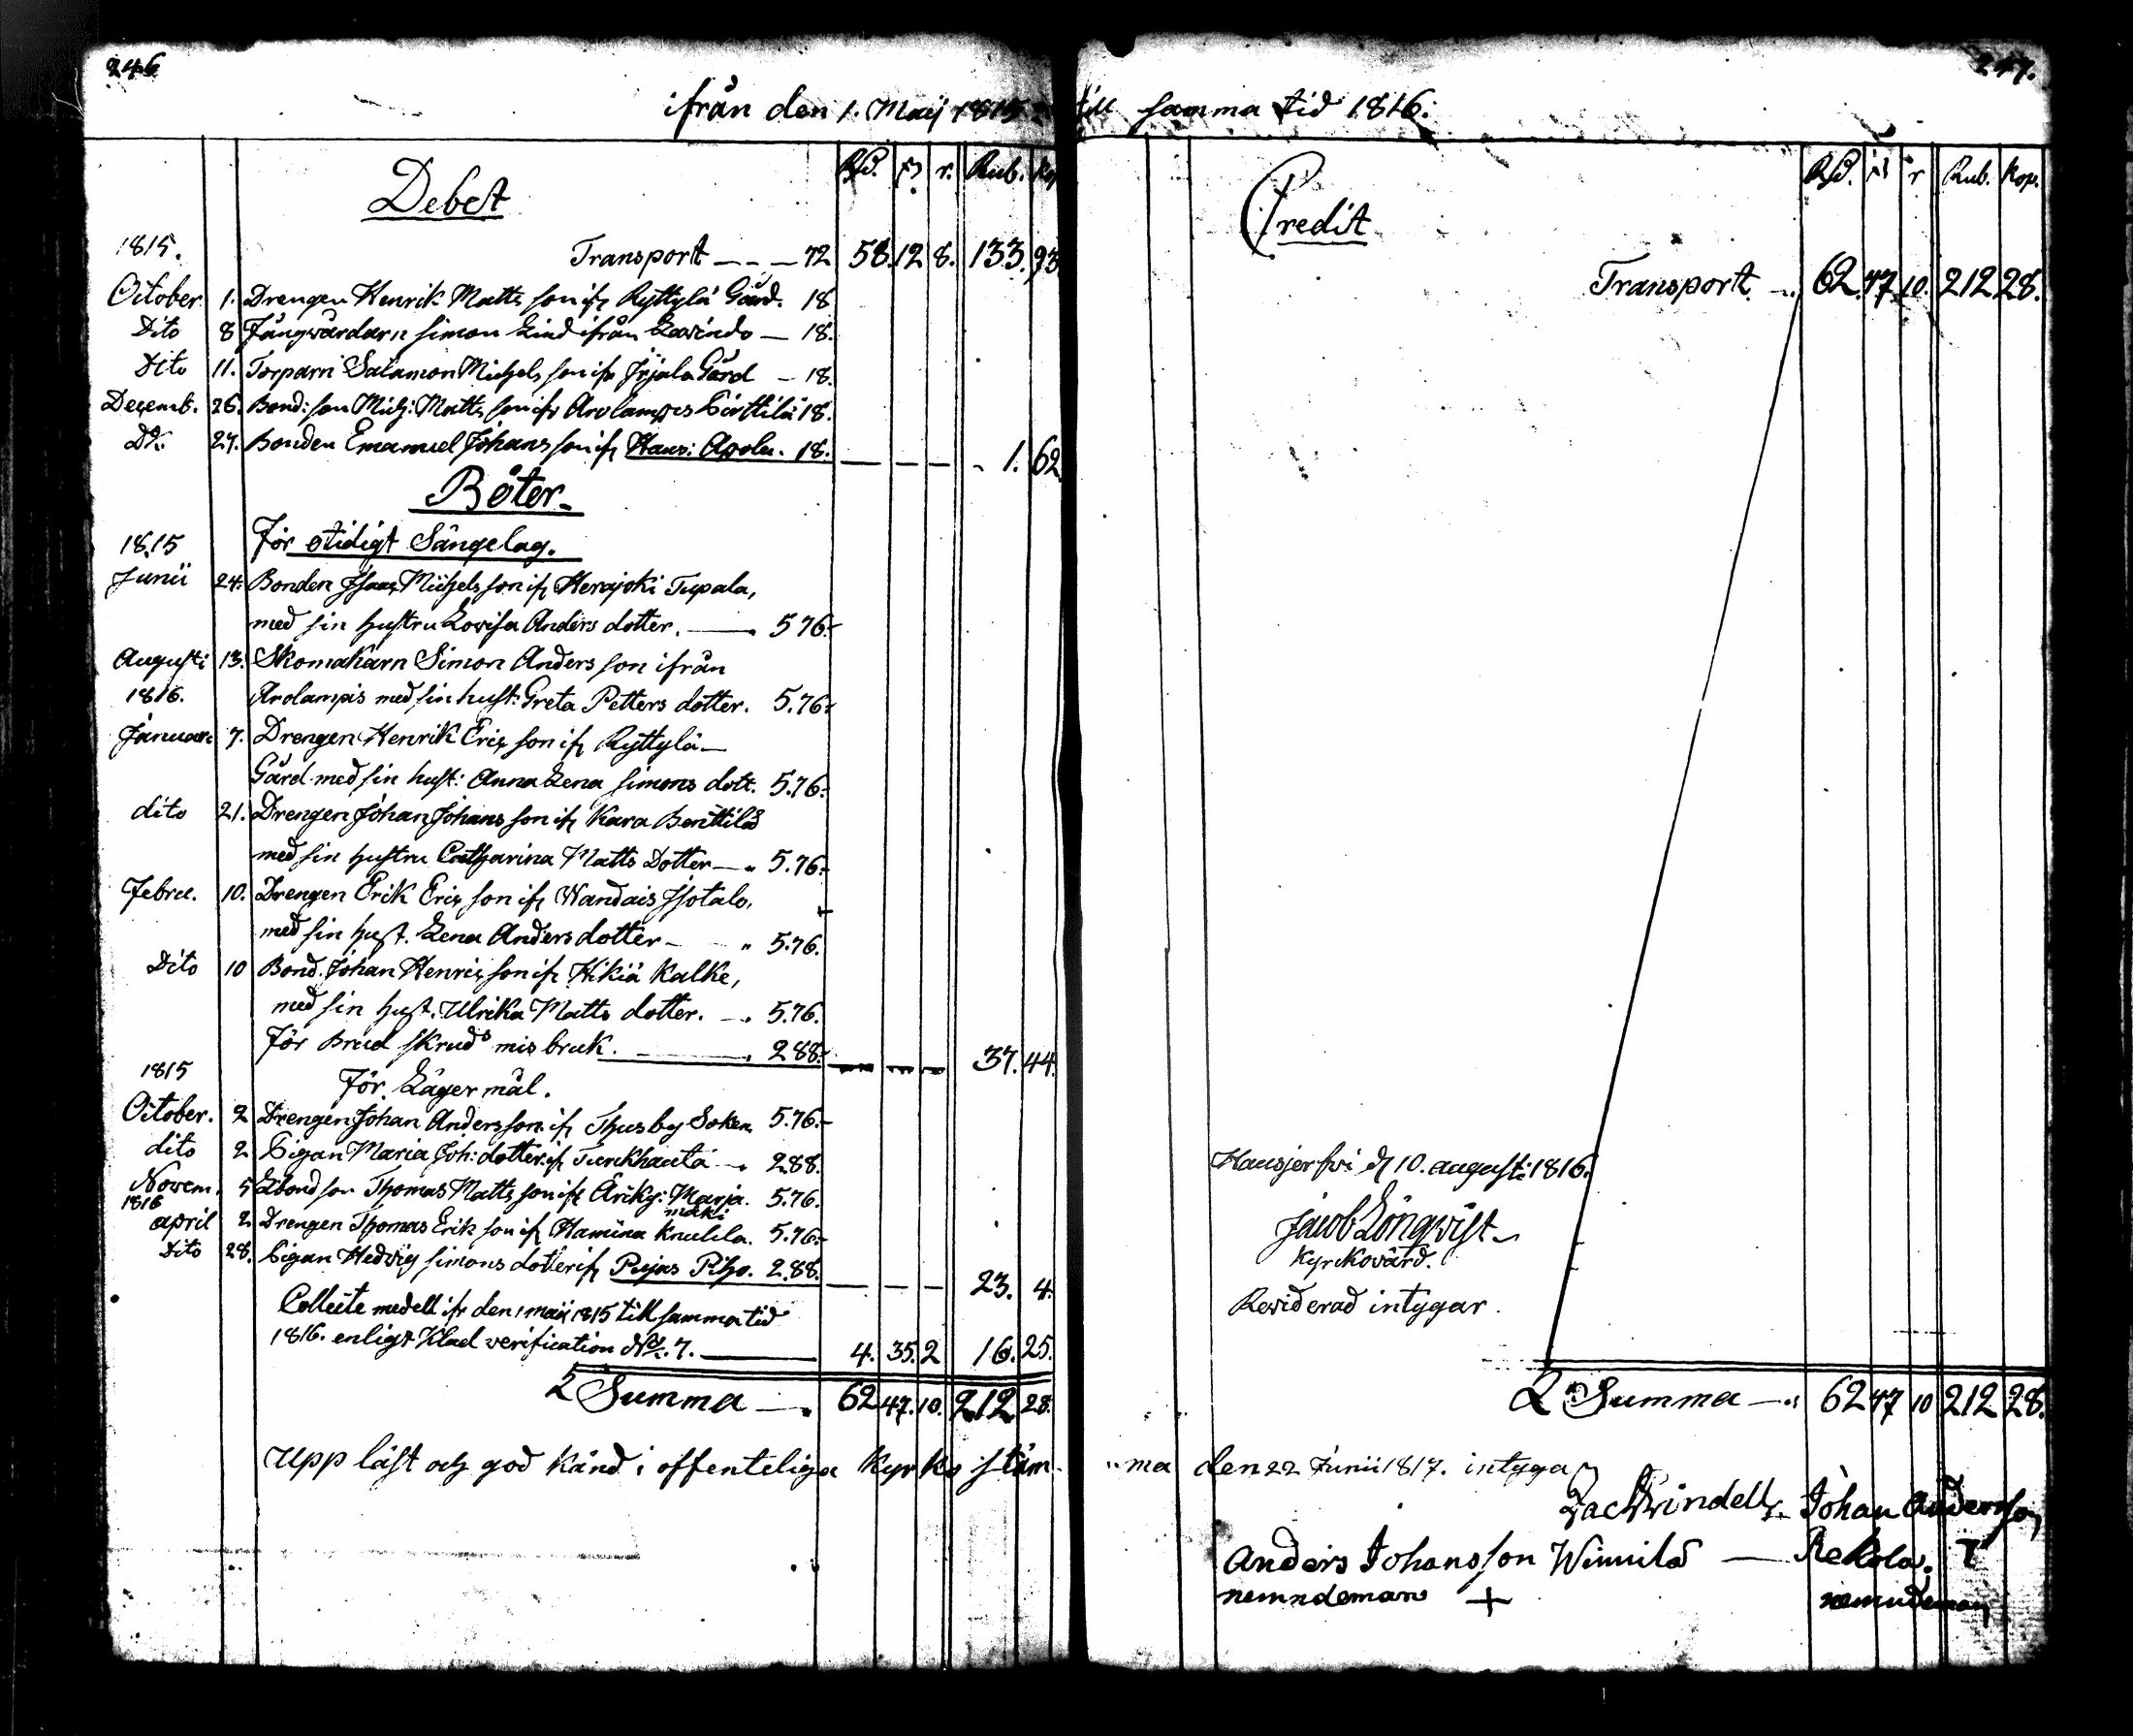 246
ifrån den 1. Maij 1815
Debet
Rd. r. Rub. Kop
1815.
Transport — 72 58. 12 8. 133. 93
October. 1. Drengen Henrik Matts son ifr Ryttylä Gård. 18
Dito 8 Fångvårdarn Simon Lind ifrån — 18.
Dito 11. Torparn Salamon Michels son ifr Gård — 18.
Decemb. 26. Bond: son Mich: Matts son ifr Arolampis Pirttilä 18.
Do. 27. Bonden Emanuel Johans son ifr Haus: 18. — — — 1. 62
Böter
För otidigt Sängelag.
1815
Junii 24. Bonden Isaac Michels son ifr Herajoki Tupala,
med sin hustru Lovisa Anders dotter. — 5 76.
Augusti 13. Skomakarn Simon Anders son ifrån
1816. Arolampis med sin hust: Greta Petters dotter. 5.76.
Januari 7. Drengen Henrik Erics son ifr Ryttylä
Gård med sin hust: Anna Lena Simons dott. 5.76.
dito 21. Drengen Johan Johans son ifr Kara Benttilä
med sin hustru Catharina Matts Dotter — 5.76.
Febru. 10. Drengen Erik Erics son ifr Wandais Isotalo,
med sin hust. Lena Anders dotter — 5.76.
Dito 10 Bond. Johan Henrics son ifr Hikiä Kalke,
med sin hust. Ulrika Matts dotter. — 5.76.
För Brud skruds misbruk. — 288. — — — 37. 44.
För Lägermål.
1815
October. 2 Drengen Johan Anders son ifr Thusby Soken 5.76.
dito 2 Pigan Maria Joh: dotter ifr Turkhauta — 288.
Novem. 5 son Thomas Matts son ifr Marja 5.76.
1816 mäki
april 2 Drengen Thomas Erik son ifr Hamina Knuula. 5.76.
Dito 28. Pigan Hedvig Simons dotter ifr 2.88. — — — 23. 4.
Collecte medell ifr den 1 maij 1815 till samma tid
1816. enligt Klad verification No. 7. — 4. 35. 2 16. 25.
Summa — 62 47. 10. 212 28.
Upp läst och god känd i offenteliga Kyrko stäm
247.
till samma tid 1816.
Credit
Rd. r Rub. Kop.
Transport — 62. 47. 10. 212 28.
Hausjerfvi d 10. augusti 1816.
Jacob Lönqvist
Kyrkovärd.
Reviderad intygar.
Summa — 62 47 10 212 28.
ma den 22 Junii 1817. intyga
Johan Andersson
Anders Johansson — Rekola.
nemndeman + nemndeman